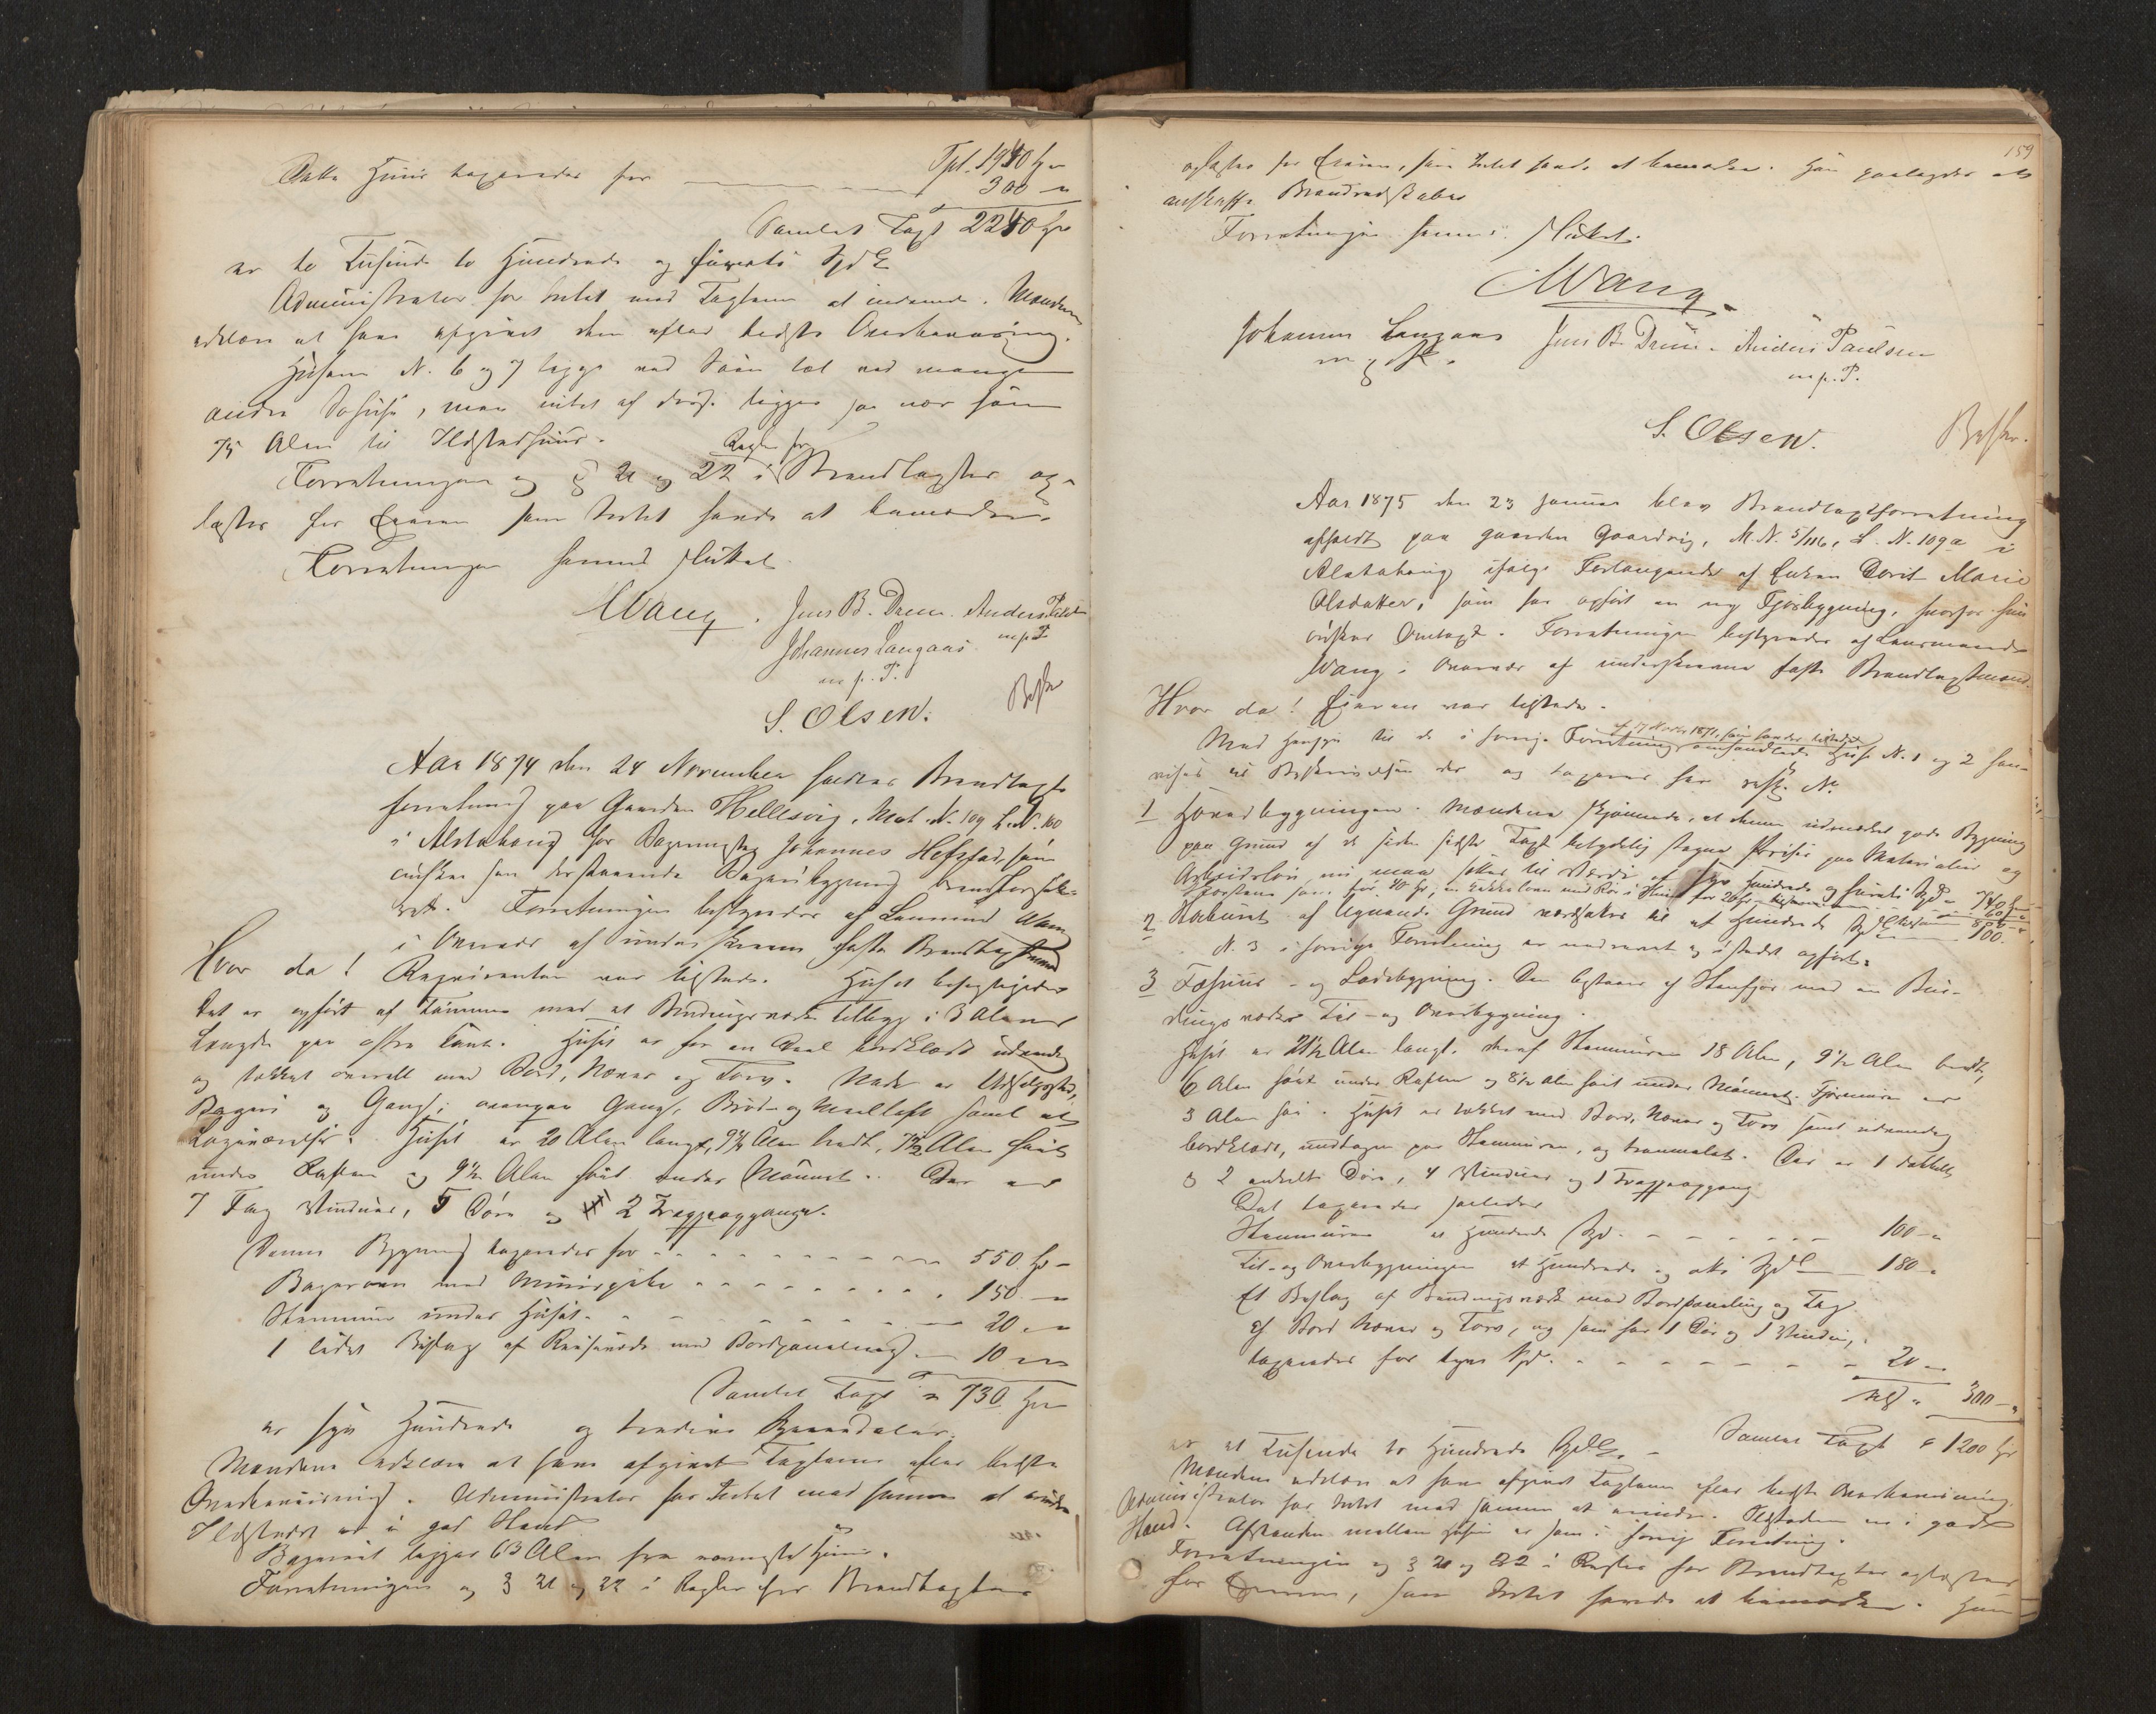 Tpt. 1940 Spd
Dette Huus taxeredes for 300 "
Samlet Taxt 2240 Spd
er to Tusinde to Hundrede og firketi Spdl
Administrator for Intet mod Taxterne at indvende. Mændene
erklære at have afgivet dem efter bedste Overbeviisning.
Husene N. 6 og 7 ligge ved Søen tæt ved mange
andre Søhuse, men intet af disse ligger saa nær som
75 Alen til Ildstedhuus.
Forretningen og § 21 og 22 i Regler for Brandtaxter op-
læstes for Eieren som Intet havde at bemærke.
Forretningen hermed sluttet.
Wang. Jens B. Drevn. Anders Pauls
Johannes Langaas m.p.P.
m.p.P.
S. Olsen. Besk
Aar 1874 den 24 November holdtes Brandtaxt
forretning paa Gaarden Hellesvig, Mat. N. 109 L.N. 100
i Alstahoug for Bagermester Johannes Hefstad, som
ønsker sin derstaaende Bageribygning brandforsik-
ret. Forretningen bestyredes af Lensmand Wang
i Overvær af underskrevne faste Brandtaxtmænd
Hvor da! Reqvirenten var tilstede. Huset besigtigedes
Det er opført af Tømmer med et Bindingsværks Tillæg i 3 Alens
Længde paa østre Kant. Huset er for en Deel bordklædt udvendig
og tækket overalt med Bord, Næver og Torv. Nede er Udsalgssted,
Bageri og Gang; ovenpaa Gang, Brød- og Melloft samt et
Logiværelse. Huset er 20 Alen langt, 9½ Alen bredt, 7½ Alen høit
under Raften og 9½ Alen høit under Mønnet. Der er
7 Fag Vinduer, 5 Døre og 2 Trappeopgange.
Denne Bygning taxeredes for 550 Spd
Bagerovn med Muurpibe 150 "
Steenmuur under Huset 20 "
1 lidet Bislag af Reisværk med Bordpaneling 10 "
Samlet Taxt " 730 Spd
er syv Hundrede og tredive Speciedaler.
Mændene erklære at have afgivet Taxterne efter bedste
Overbeviisning. Administrator har Intet mod samme at erindre
Ildstedet er i god Stand
Bageriet ligger 63 Alen fra nærmeste Huus.
Forretningen og § 21 og 22 i Regler for Brandtaxter
159
oplæstes for Eieren, som Intet havde at bemærke. Han paalagdes at
anskaffe Brandredskaber
Forretningen hermed sluttet.
Wang
Johannes Langaas Jens B. Drevn. Anders Paulsen
m.p.P. m.p.P.
S. Olsen. Besk.
Aar 1875 den 23 Januar blev Brandtaxtforretning
afholdt paa Gaarden Gaardvig, M.N. 5/116, L.N. 109a i
Alstahoug ifølge Forlangende af Enken Dorit Marie
Olsdatter, som har opført en ny Fjøsbygning, hvorfor hun
ønsker Omtaxt. Forretningen bestyredes af Lensmand
Wang i Overvær af underskrevne faste Brandtaxtmænd.
Hvor da! Eieren var tilstede.
Med Hensyn til de i forrige Forretning omhandlede Huse N. 1 og 2 hen-
vises til Beskrivelsen der og taxeres her resp. No
1 Hovedbygningen. Mændene skjønnede, at denne udmærket gode Bygning
paa Grund af de siden sidste Taxt betydelig stegne Priser paa Materialier og
Arbeidsløn nu maa sættes til Værdi af syv Hundrede og firti Spd 740 Spd
Skorstene for 40 Spd, en Kakkelovn med Rør i for 20 Spd 60
800
2 Staburet af lignende Grund værdsattes til et Hundrede Spdl 100.
N. 3 i forrige Forretning er nedrevet og i stedet opført:
3 Fæhuus- og Ladebygning. Den bestaaer af Steenfjøs med en Bin-
dingsværks Til- og Overbygning.
Huset er 21½ Alen langt, deraf Steenmuren 18 Alen, 9½ Alen bredt,
6 Alen høit under Raften og 8½ Alen høit under Mønnet. Fjøsmuren er
3 Alen høi. Huset er tækket med Bord, Næver og Torv samt udvendig
bordklædt, undtagen paa Steenmuren, og tranmalet. Der er 1 dobbelt
og 2 enkelte Døre, 4 Vinduer og 1 Trappeopgang
Det taxeredes saaledes
Steenmuren et Hundrede Spd. 100 "
Til- og Overbygningen et Hundrede og otti Spdl 180 "
Et Bislag af Bindingsværk med Bordpaneling og Tag
af Bord Næver og Torv, og som har 1 Dør og 1 Vindu,
taxeredes for tyve Spd. 20 "
300 "
Samlet Taxt " 1200 Spd
er et Tusende to Hundrede Spdl.
Mændene erklære at have afgivet Taxterne efter bedste Overbeviisning.
Administrator har Intet mod samme at erindre. Ildstederne er i god
Stand. Afstanden mellem Husene er som i forrige Forretning.
Forretningen og § 21 og 22 i Regler for Brandtaxter oplæstes
for Eieren, som Intet havde at bemærke. Hun